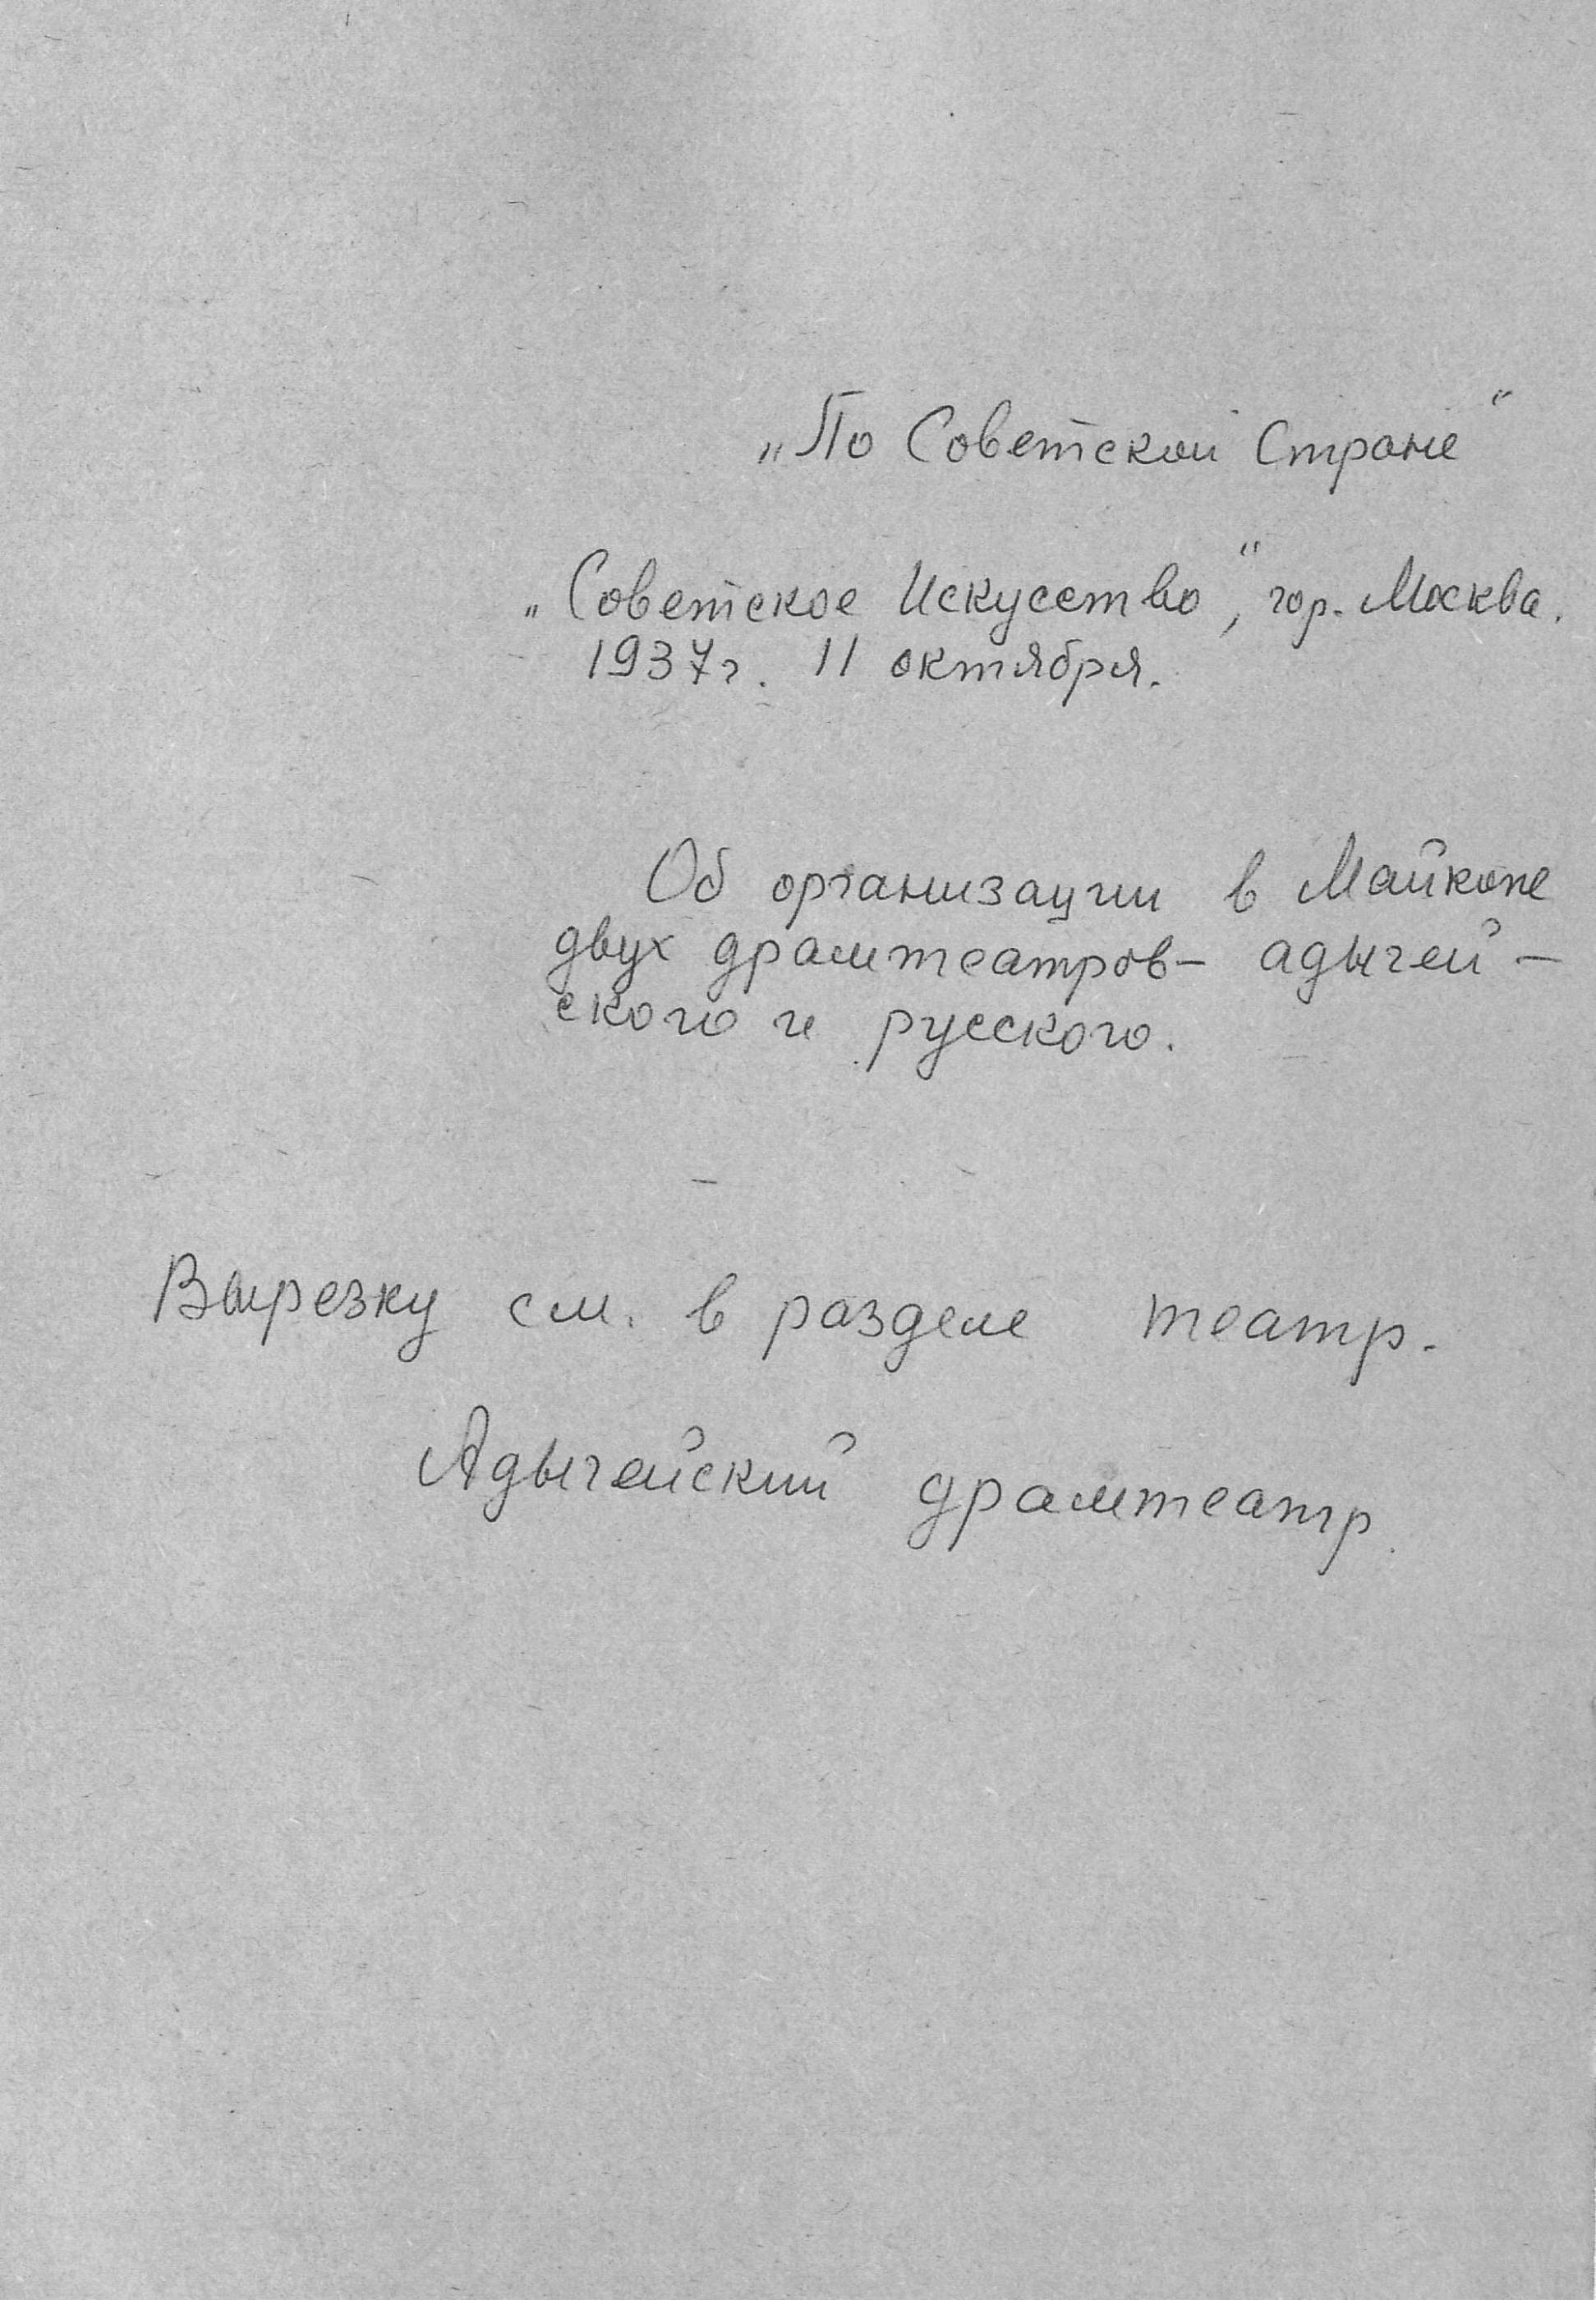 „По Советской Стране“
„Советское Искусство“, гор. Москва.
1937г. 11 октября.
Об организации в Майкопе
двух драмтеатров- адыгей-
ского и русского.
Вырезку см. в разделе театр.
Адыгейский драмтеатр.